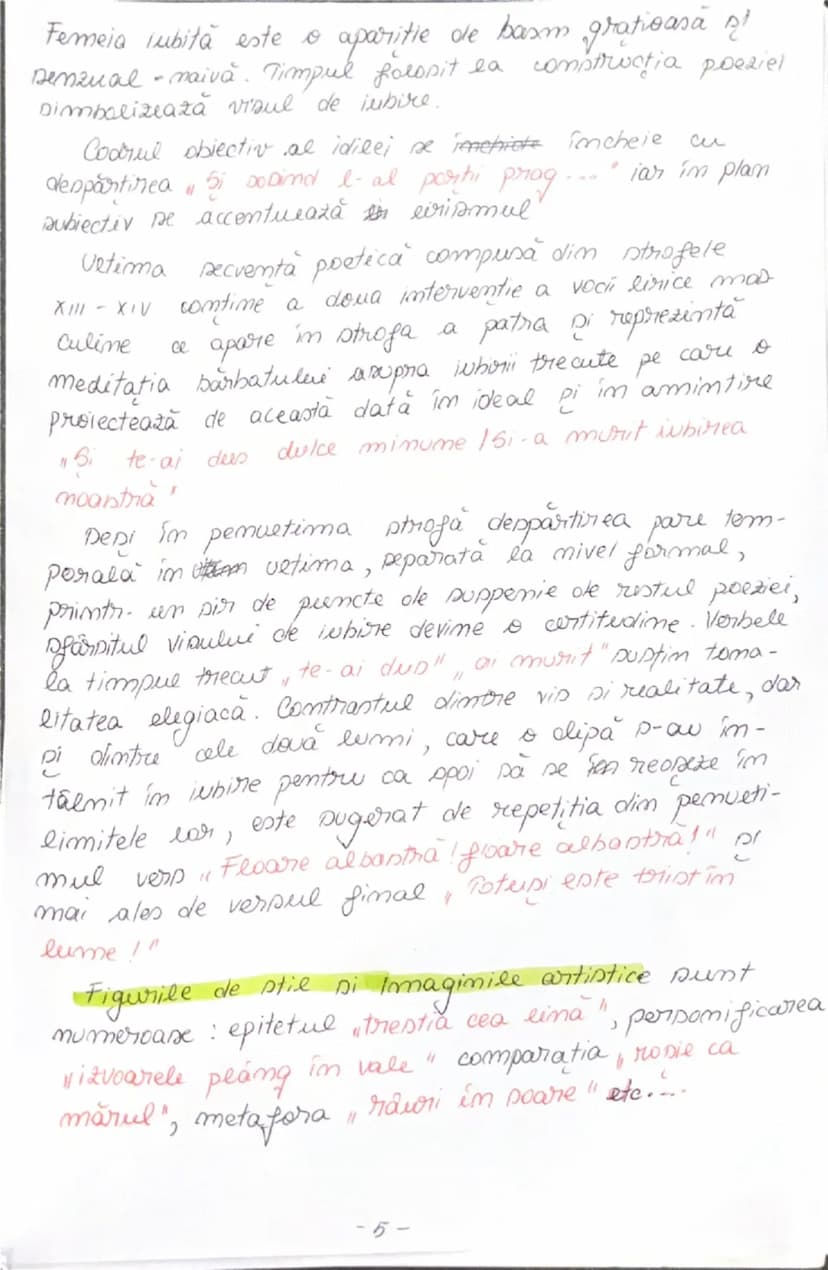 Femeia iubită este o apariție de basm grațioasă și
senzual - naivă. Timpul folosit la construcția poeziei
simbolizează visul de iubire.
Cadrul obiectiv al idilei se închide încheie cu
despărțirea „Și sosind l-al porții prag...." iar în plan
subiectiv se accentuează lirismul
Ultima secvență poetică compusă din strofele
XIII - XIV conține a doua intervenție a vocii lirice mas
culine ce apare în strofa a patra și reprezintă
meditația bărbatului asupra iubirii trecute pe care o
proiectează de această dată în ideal și în amintire
„Și te-ai dus dulce minune / Si-a murit iubirea
noastră"
Deși în penultima strofă despărțirea pare tem-
porală în ultima, separată la nivel formal,
printr-un șir de puncte de suspensie de restul poeziei,
sfârșitul visului de iubire devine o certitudine. Verbele
la timpul trecut „te-ai dus" „ai murit" susțin tona-
litatea elegiacă. Contrastul dintre vis și realitate, dar
și dintre cele două lumi, care o clipă s-au în-
tâlnit în iubire pentru ca apoi să se reașeze în
limitele lor, este sugerat de repetiția din penulti-
mul vers „Floare albastră! floare albastră!" și
mai ales de versul final „Totuși este trist în
lume!"
Figurile de stil si Imaginile artistice sunt
numeroase : epitetul „trestia cea lină", personificarea
„izvoarele plâng în vale" comparația „roșie ca
mărul", metafora „râuri în soare" etc....
- 5 -